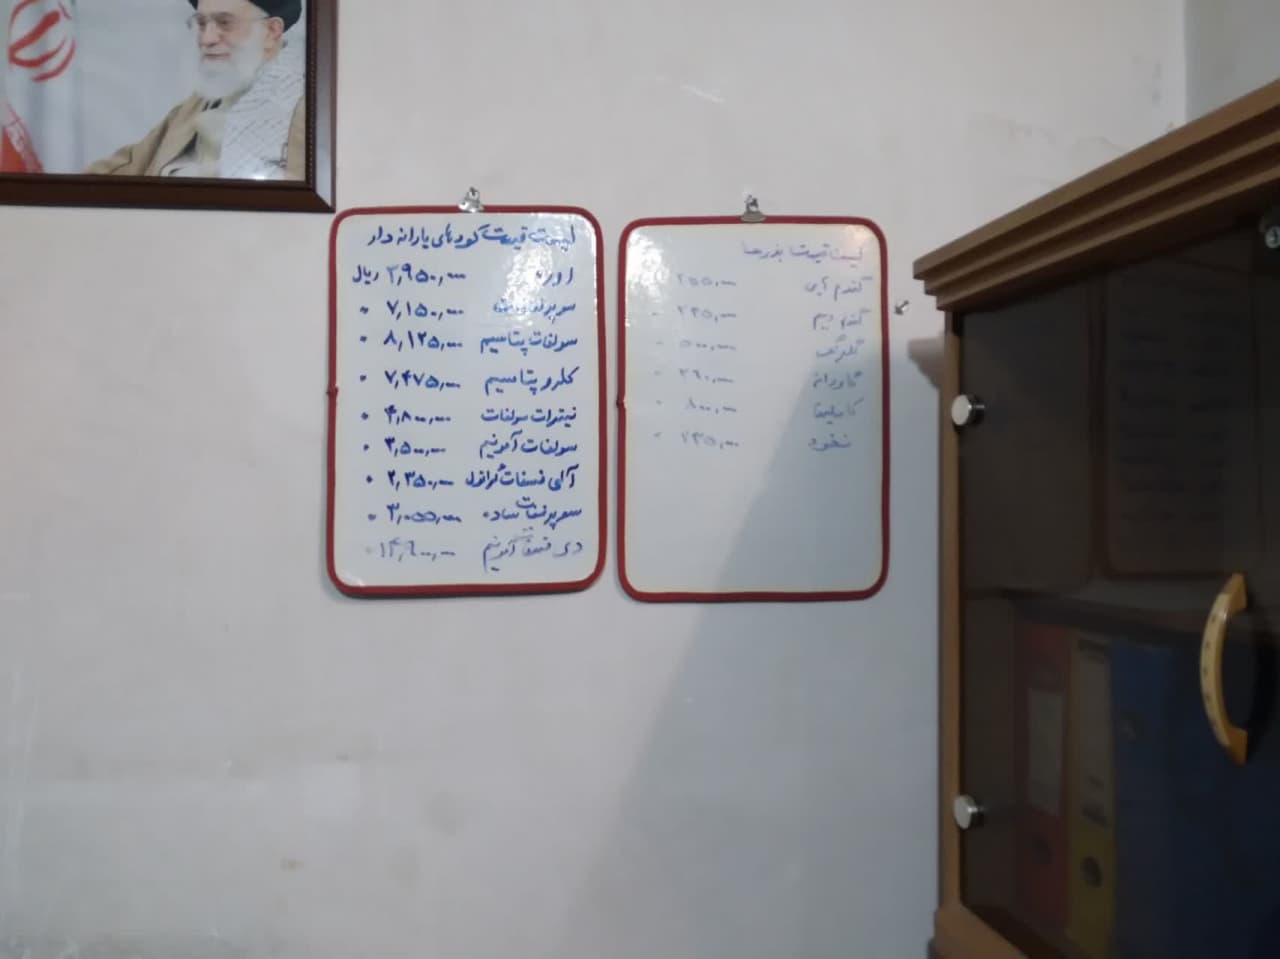 لیست قیمت کودهای یارانه دار
اوره ۲,۹۵۰,۰۰۰ ریال
سوپرفسفات ۷,۱۵۰,۰۰۰ "
سولفات پتاسیم ۸,۱۲۵,۰۰۰ "
کلرو پتاسیم ۷,۴۷۵,۰۰۰ "
نیترات سولفات ۴,۸۰۰,۰۰۰ "
سولفات آمونیم ۳,۵۰۰,۰۰۰ "
آلی فسفات گرانول ۲,۳۵۰,۰۰۰ "
سوپرفسفات ساده ۳,۰۵۵,۰۰۰ "
دی فسفات آمونیم ۱۴,۹۰۰,۰۰۰ "
لیست قیمت بذرها
گندم آبی ۲۵۵,۰۰۰
گندم دیم ۲۴۵,۰۰۰ "
گلرنگ ۵۰۰,۰۰۰ "
۲۹۰,۰۰۰ "
کاملینا ۸۰۰,۰۰۰ "
نخود ۷۳۵,۰۰۰ "